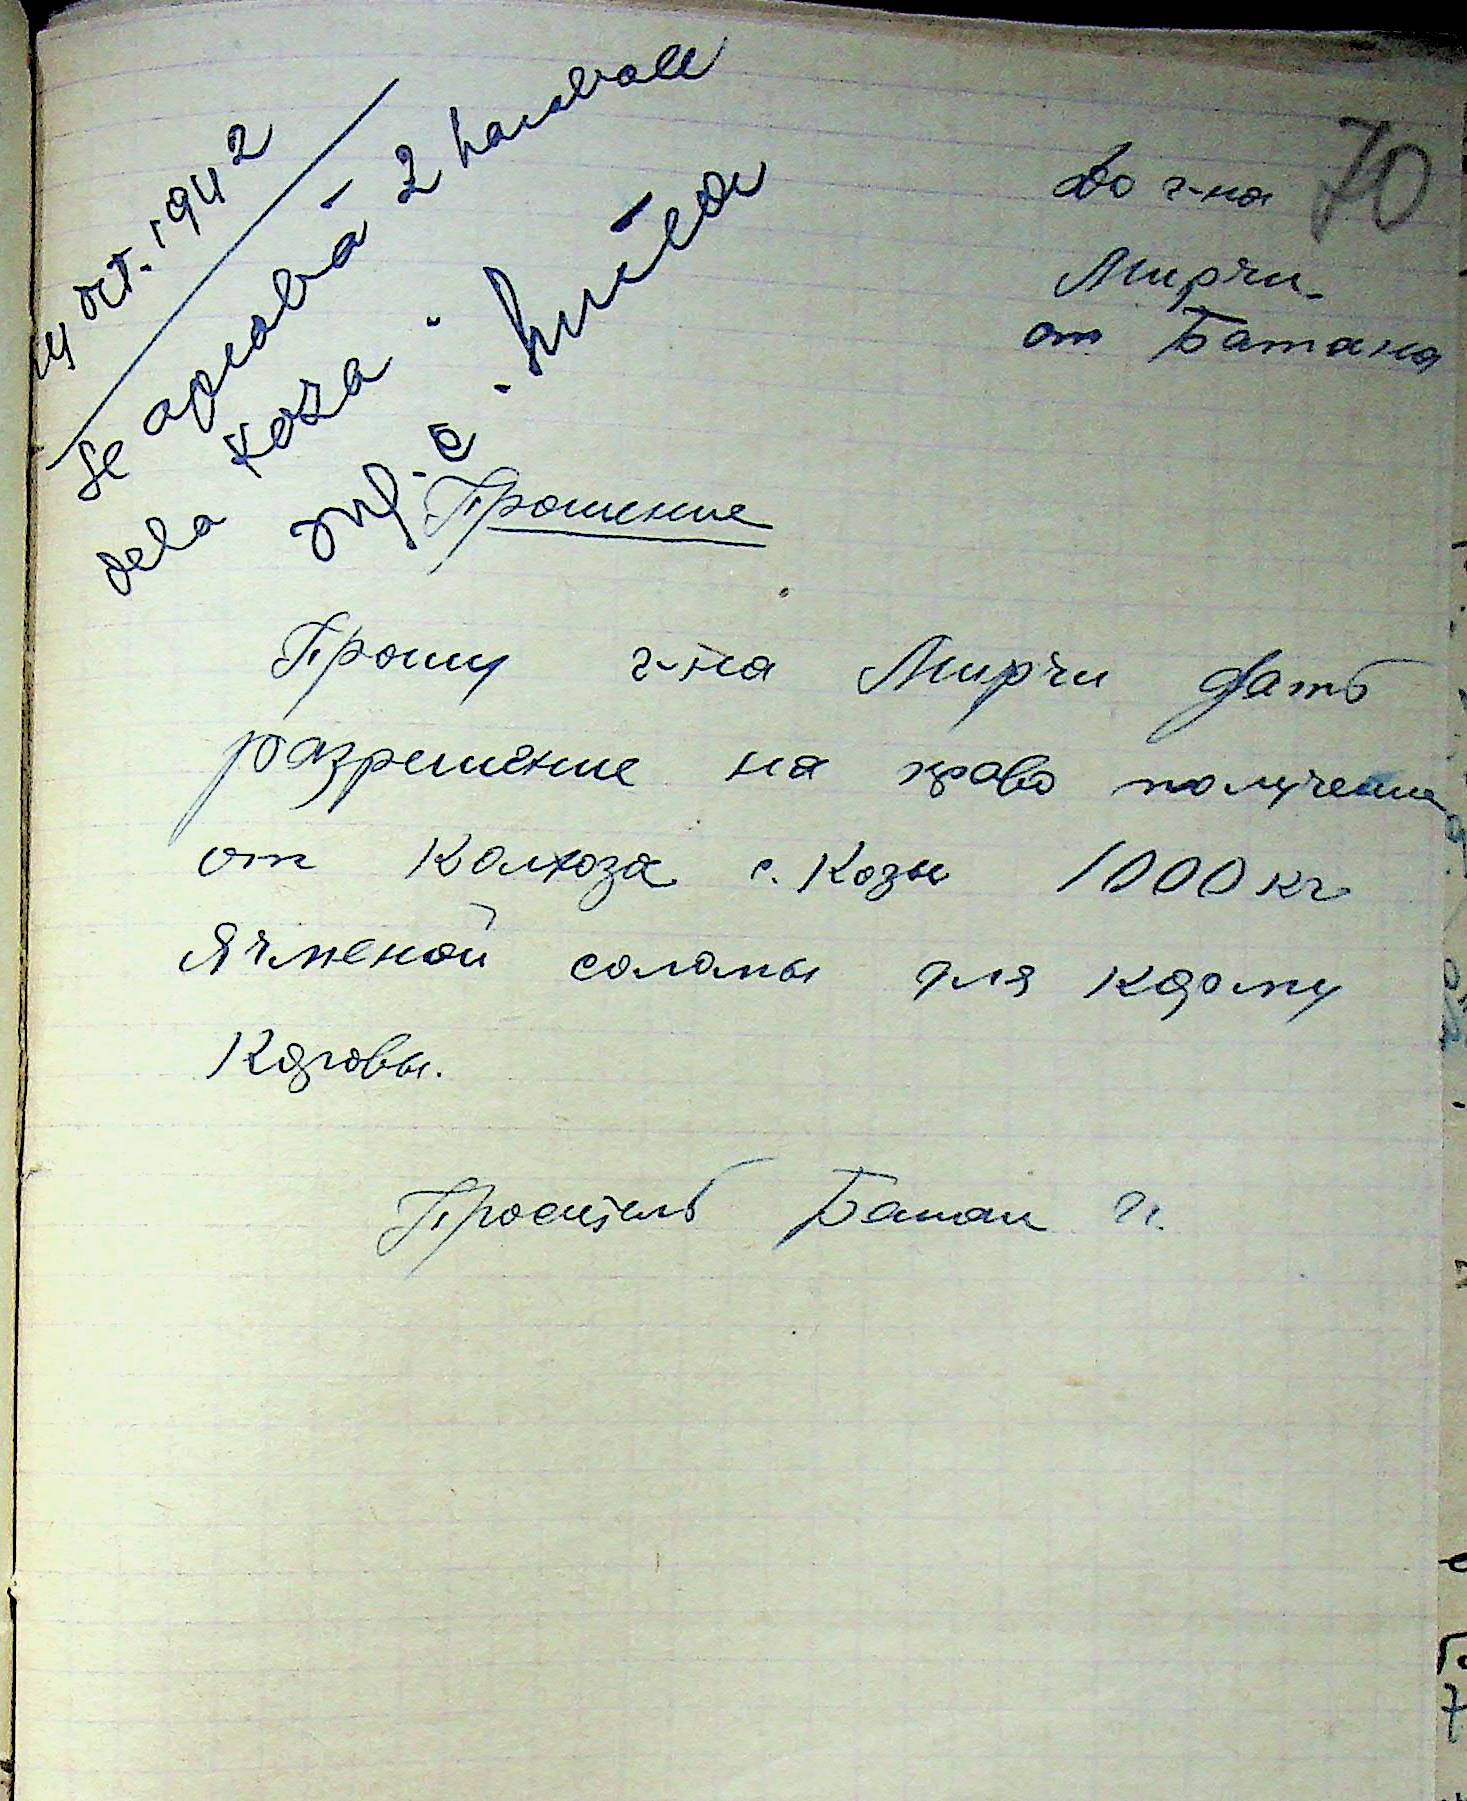 14 oct. 1942
Se aprobă 2 harabale
dela Koza.
70
До г-на
Мирчи.
от Батана
Прошение
Прошу г-на Мирчи дать
разрешение на право получение
от Колхоза с. Козы 1000 кг
Ячменой соломы для корму
Коровы.
Проситель Батан